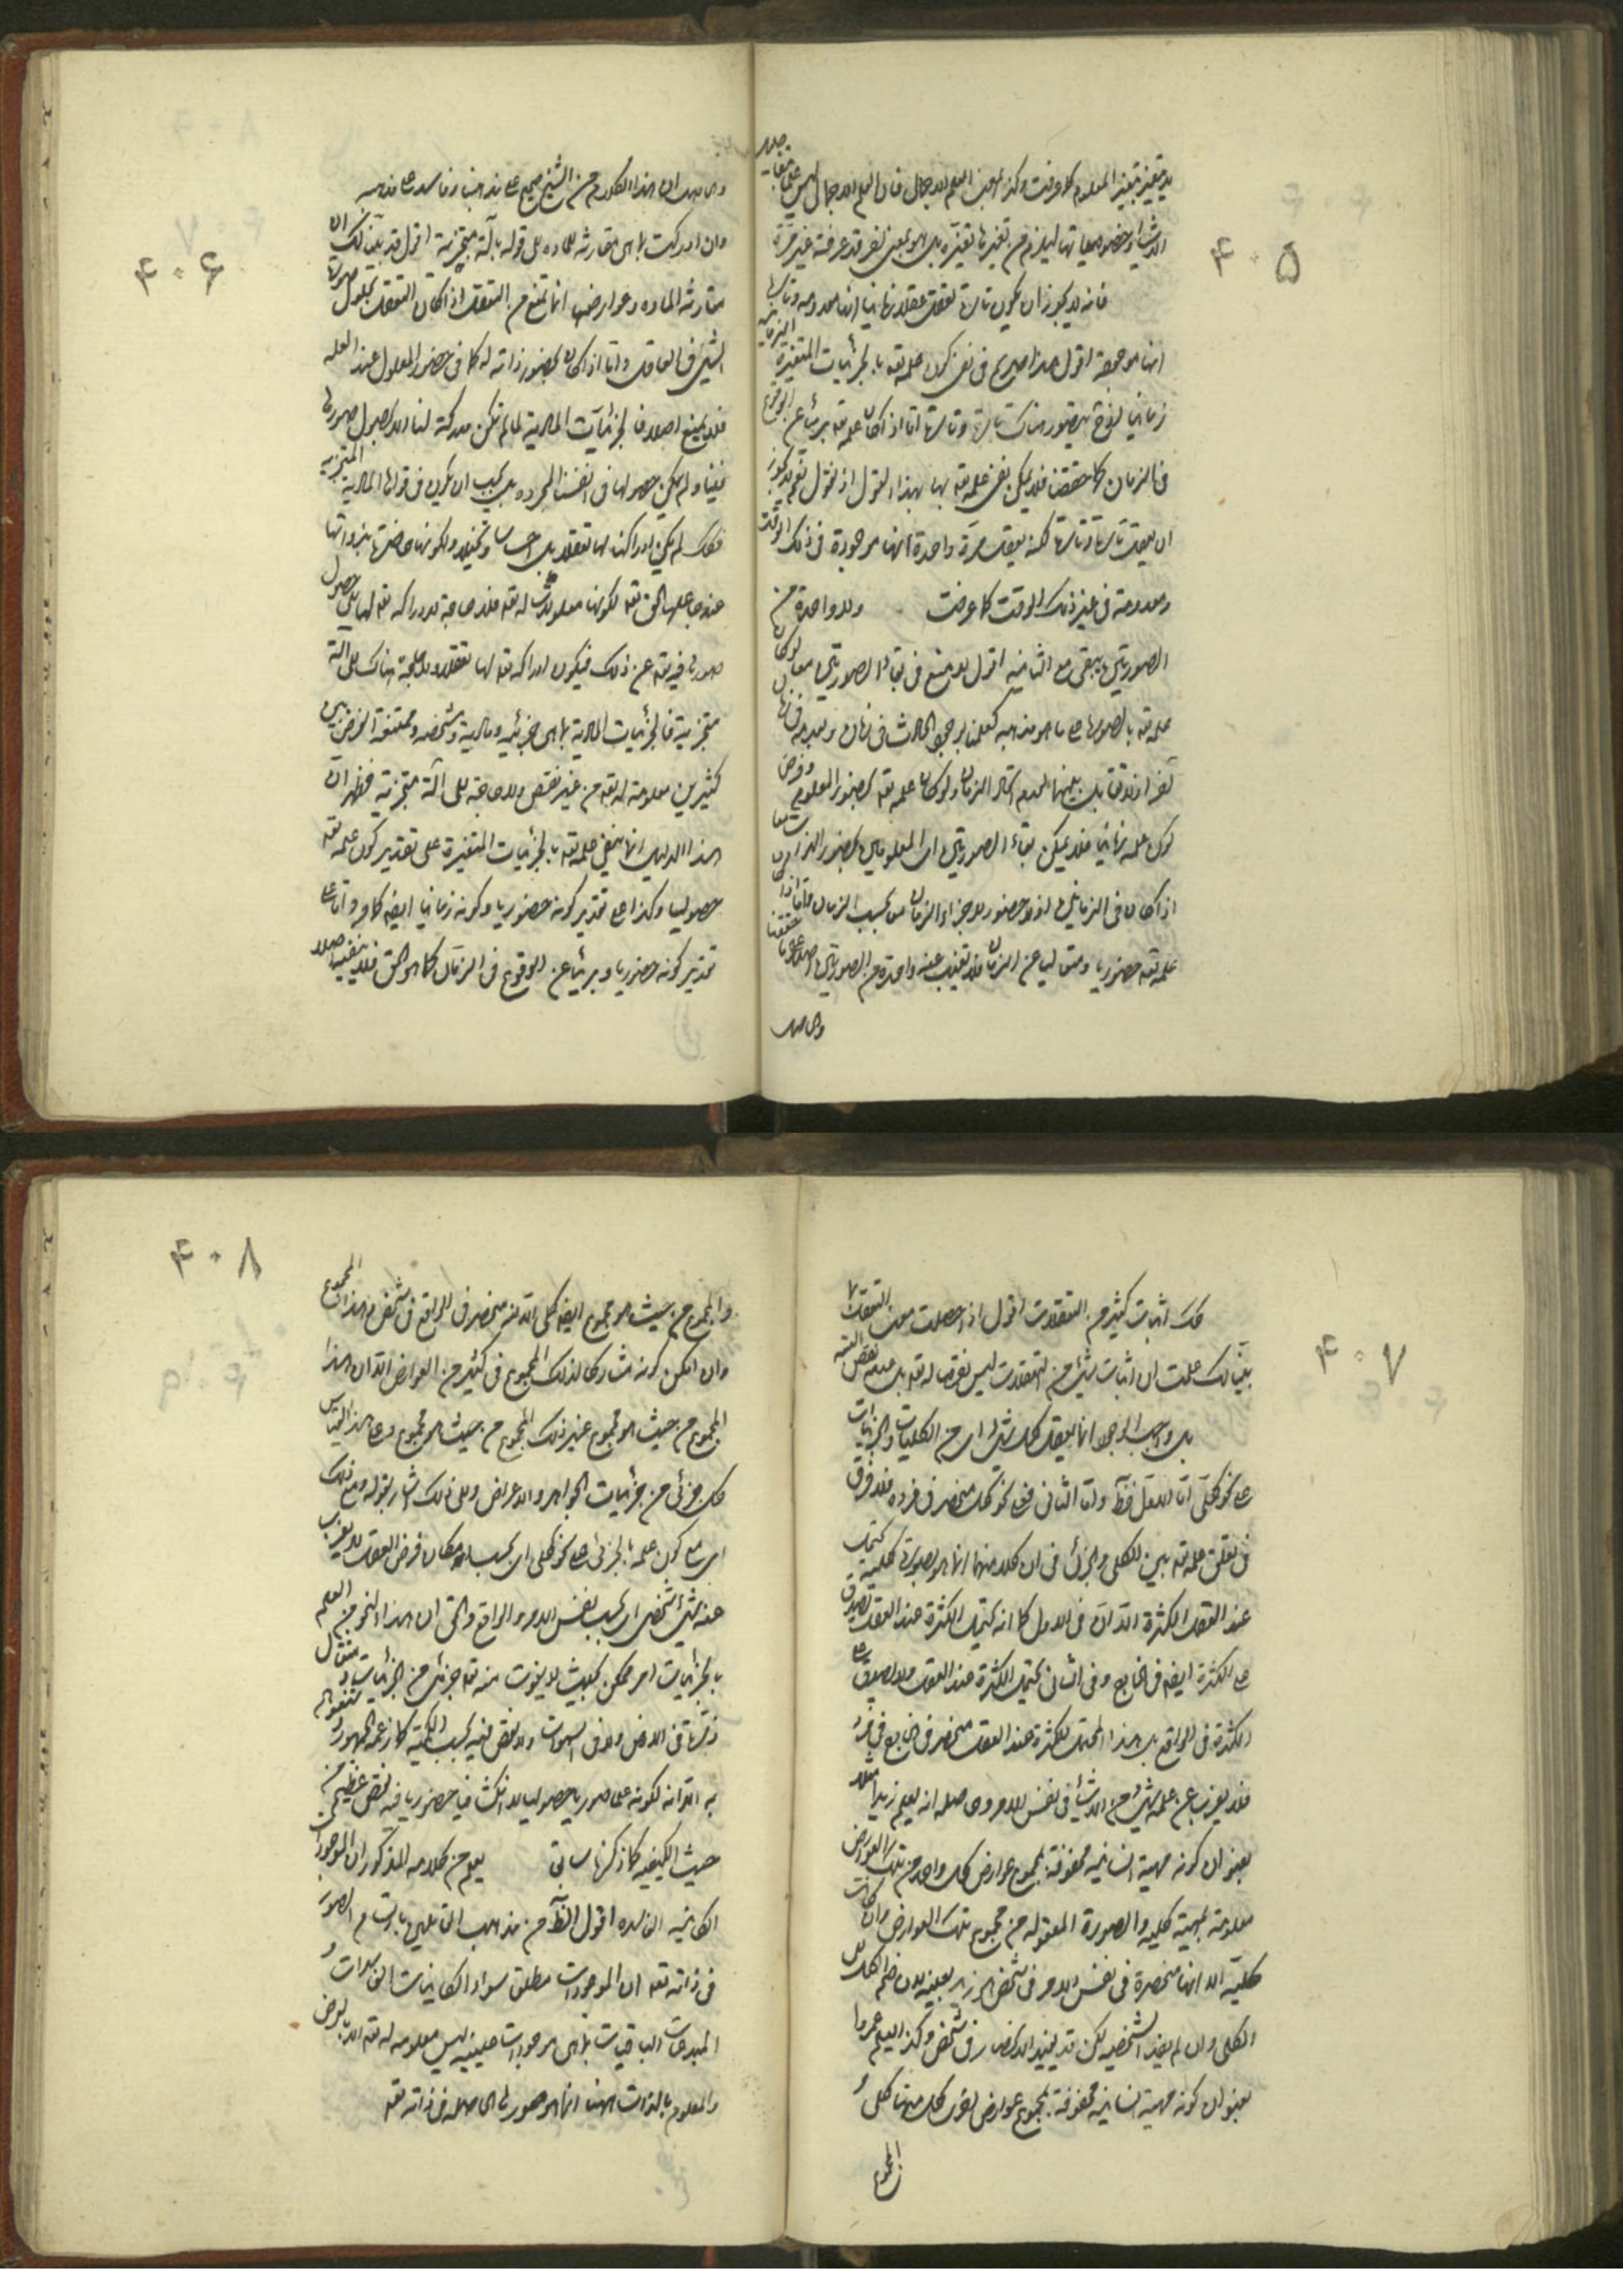 ۴۰۵
لا يتغير بتغير المعلوم كما عرفت وكذا بحسب العلم الاجمالى فان العلم الاجمالى ليس علما
الاشياء وخصوصياتها ليلزم من تغيرها تغيره بل هو بمعنى اخر قد عرفته غير مرة
فانه لا يجوز ان يكون تارة يعقل عقلا زمانيا انها معدومة وتارة
انها موجودة اقول هذا صريح فى نفى كون علمه تعه بالجزئيات المتغيرة
زمانيا اذ ح يتصور هناك تارة وتارة اما اذا كان علمه تعه بريئا عن الوقوع
فى الزمان كما حققنا فلا يمكن نفى علمه تعه بها بهذا القول اذ نقول نعم لا يجوز
ان يعقل تارة وتارة لكنه يعقل مرة واحدة انها موجودة فى ذلك الوقت
ومعدومة فى غير ذلك الوقت كما عرفت ولا واحدة من
الصورتين يبقى مع الثانية اقول لا يمتنع فى بقاء الصورتين معا لو كان
علمه تعه بالصور على ما هو مذهبه كعلمنا بوجود الحادث فى زمان وبعدمه فى زمان
اخر اذ لا تقابل بينهما لعدم اتحاد الزمان ولو كان علمه تعه بحضور المعلوم وفرض
كون علمه زمانيا فلا يمكن بقاء الصورتين اى المعلومين بحضور الذات معا
اذا كان فى الزمانين اذ لا حضور لاجزاء الزمان معا بحسب الزمان واما اذا كان
علمه تعه حضوريا ومتعاليا عن الزمان فلا تغيب عنه واحدة من الصورتين اصلا على ما حققنا
والحاصل
۴۰۶
والحاصل ان هذا الكلام من الشيخ صحيح على مذهبنا وفاسد على مذهبه
وان ادركت بما هى مقارنة لمادة الى قوله بآلة متجزية اقول قد بينا لك ان
مقارنة المادة وعوارضها انما تمنع من التعقل اذا كان التعقل بحلول صورة
الشئ فى العاقل واما اذا كان بحضور ذاته له كما فى حضور المعلول عند العلة
فلا يمنع اصلا فالجزئيات المادية لما لم تكن مدركة لنا الا بحصول صورتها
فينا ولم يمكن حصولها فى انفسنا المجردة بل يجب ان يكون فى قوانا المادية المتجزية
فلذلك لم يكن ادراكنا لها تعقلا بل احساسا وتخيلا ولكونها حاضرة بذواتها
عند جاعلها الحق تعه لكونها معلولات له تعه فلا حاجة لادراكه تعه لها الى حصول
صورها فيه تعه عن ذلك فيكون ادراكه تعه لها تعقلا ولا حاجة هناك الى آلة
متجزية فالجزئيات المادية بما هى جزئية ومادية ومشخصة وممتنعة الفرض بين
كثيرين معلومة له تعه من غير نقص ولا حاجة الى آلة متجزية فظهر ان
هذا الدليل انما ينفى علمه تعه بالجزئيات المتغيرة على تقدير كون علمه تعه
حصوليا وكذا على تقدير كونه حضوريا وكونه زمانيا ايضا كما مر واما على
تقدير كونه حضوريا وبريئا عن الوقوع فى الزمان كما هو الحق فلا ينفيه اصلا
۴۰۷
كك اثبات كثير من التعقلات اقول اذا حصلت معنى التعقل
بينا لك علمت ان اثبات شئ من التعقلات ليس نقصا له تعه بل عدمه نقص
بل واجب الوجود انما يعقل كل شئ اى من الكليات والجزئيات
على نحو كلى اما الاول فظ واما الثانى فعلى نحو كلى منحصر فى فرده فلا فرق
فى تعلق علمه تعه بين الكلى والجزئى فى ان كلا منهما انما هو بصورة كلية يحتمل
عند العقل الكثرة الا ان فى الاول كما انه يحتمل الكثرة عند العقل يصدق
على الكثرة ايضا فى الخارج وفى الثانى يحتمل الكثرة عند العقل ولا يصدق على
الكثرة فى الواقع بل هذا المحتمل للكثرة عند العقل منحصر فى الخارج فى فرد
فلا يعزب عن علمه شئ من الاشياء فى نفس الامر وحاصله انه يعلم زيدا مثلا
بعنوان كونه مهية انسانية محفوفة بمجموع عوارض كل واحد من تلك العوارض
معلومة بمهية كلية والصورة المعقولة من مجموع تلك العوارض وان كانت
كلية الا انها منحصرة فى نفس الامر فى شخص هو زيد بعينه لان ضم الكلى الى
الكلى وان لم يفد الشخصية لكن قد يفيد الانحصار فى شخص وكذا يعلم عمروا
بعنوان كونه مهية انسانية محفوفة بمجموع عوارض اخرى كل منها كلى و
المجموع
۴۰۸
والمجموع من حيث هو مجموع ايضا كلى الا انه منحصر فى الواقع فى شخص وهذا المجموع
وان امكن كونه مشاركا لذلك المجموع فى كثير من العوارض الا ان هذا
المجموع من حيث هو مجموع غير ذلك المجموع من حيث هو مجموع وعلى هذا القياس
كل جزئى من جزئيات الجواهر والاعراض والى ذلك اشار بقوله ومع ذلك
اى مع كون علمه بالجزئى على نحو كلى اى بحسب امكان فرض العقل لا يعزب
عنه شئ شخصى اى بحسب نفس الامر والواقع والحق ان هذا النحو من العلم
بالجزئيات امر ممكن بحيث لا يفوت منه تعه جزئى من الجزئيات ومثقال
ذرة فى الارض ولا فى السموات ولا نقص فيه بحسب الكمية كما زعمه الجمهور وشنعوا
به الا انه لكونه علما صوريا حصوليا لا انكشافيا حضوريا فيه نقص عظيم من
حيث الكيفية كما ذكرنا سابقا يعلم من كلامه المذكور ان الموجودات
الكائنة الفاسدة اقول الظ من مذهب القائلين بارتسام الصور
فى ذاته تعه ان الموجودات مطلقا سواء الكائنات الفاسدات و
المبدعات الباقيات بما هى موجودات عينية ليس معلومة له تعه الا بالعرض
والمعلوم بالذات ايضا انما هو صورها الحاصلة فى ذاته تعه